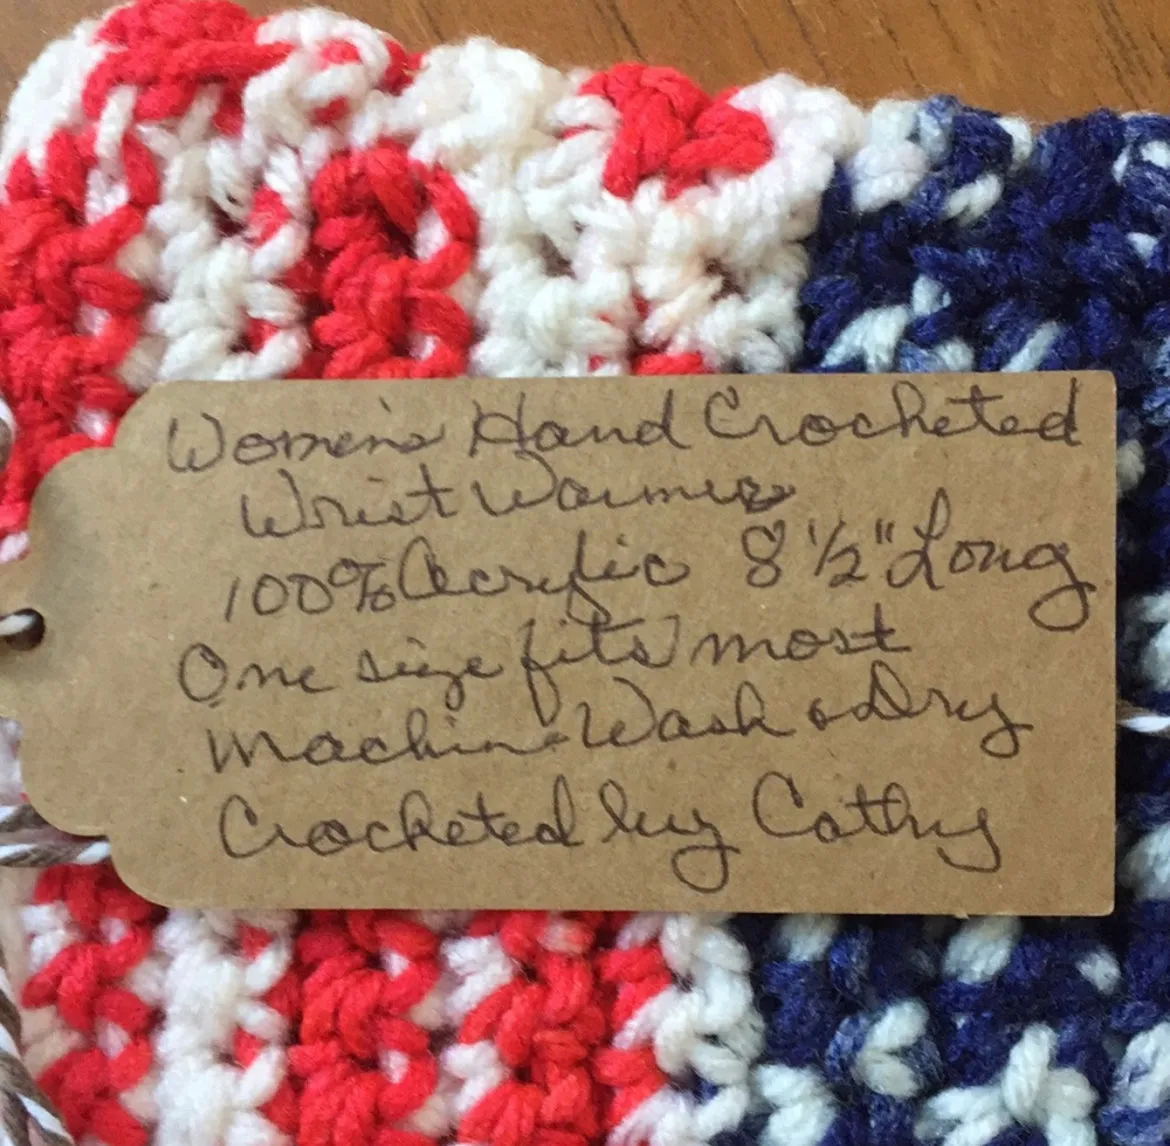 Women's Hand Crocheted
Wrist Warmers
100% Acrylic 8 1/2" Long
One size fits most
Machine Wash & Dry
Crocheted by Cathy